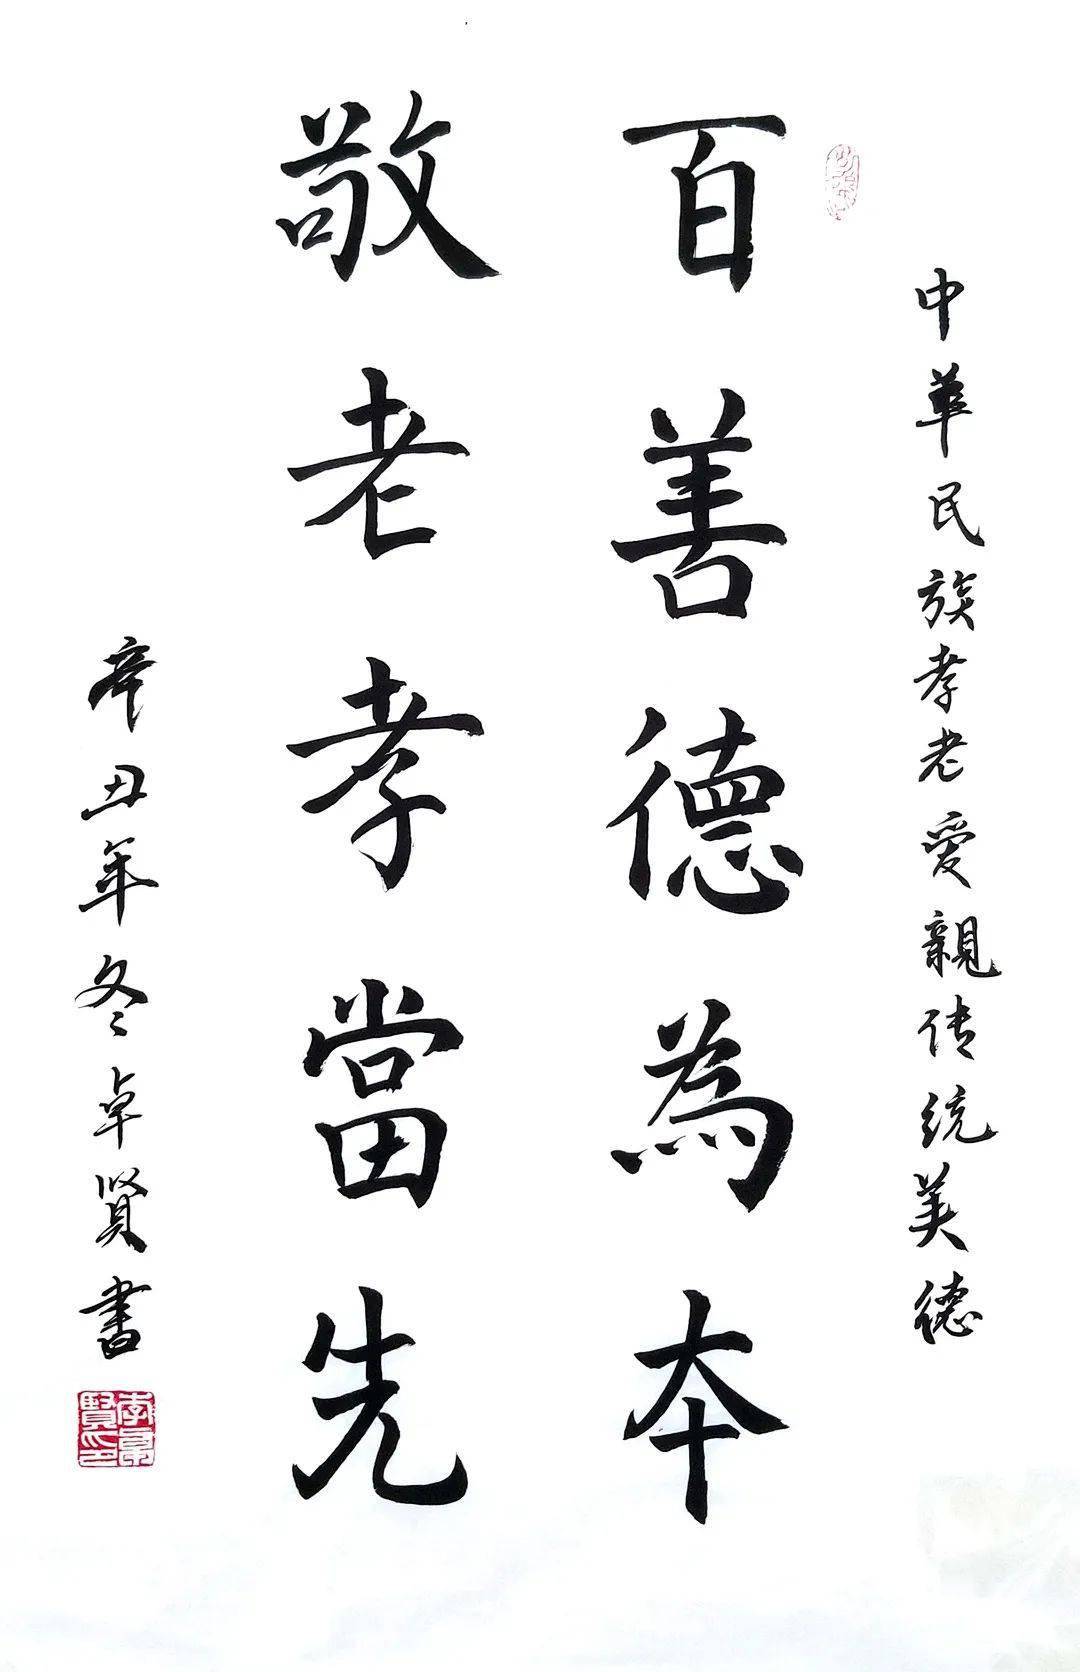 中華民族孝老爱親传统美德
百善德為本
敬老孝當先
辛丑年冬卓賢書
李卓
賢印